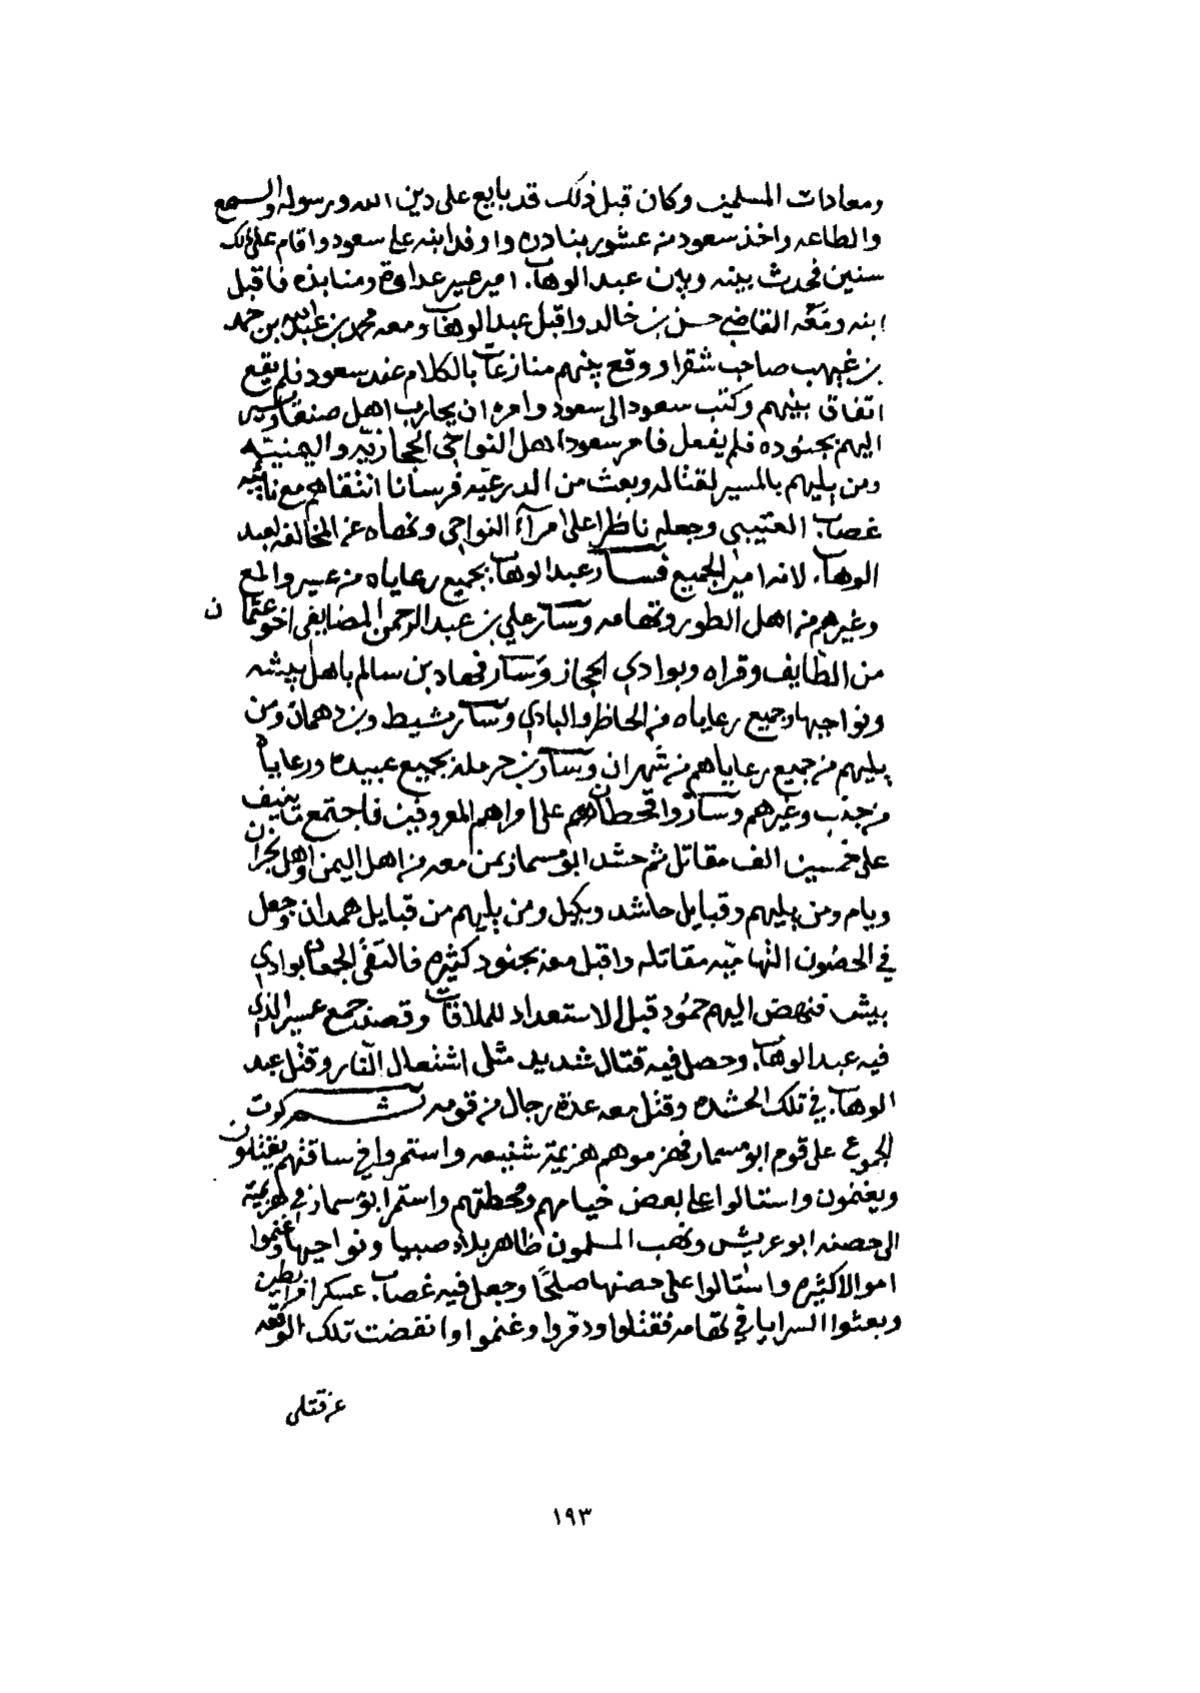 ومعادات المسلمين وكان قبل ذلك قد بايع على دين الله ورسوله والسمع
والطاعه واخذ سعود من عشور بنادره واوفد ابنه على سعود واقام على ذلك
سنين فحدث بينه وبين عبد الوهاب امير عسير عداوة ومنابذه فاقبل
ابنه ومعه القاضي حسن بن خالد واقبل عبد الوهاب ومعه محمد بن عبد الله بن حمد
بن غيهب صاحب شقرا ووقع بينهم منازعات بالكلام عند سعود فلم يقع
اتفاق بينهم وكتب سعود الى سعود وامره ان يحارب اهل صنعا ويسير
اليهم بجنوده فلم يفعل فامر سعود اهل النواحي الحجازيه واليمنيه
ومن يليهم بالمسير لقتاله وبعث من الدرعيه فرسانا انتقاهم مع نائبه
غصاب العتيبي وجعله ناظرا على امرآء النواحي ونهاه عن المخالفه لعبد
الوهاب لانه امير الجميع فسار عبد الوهاب بجميع رعاياه من عسير والمع
وغيرهم من اهل الطور وتهامه وسار علي بن عبد الرحمن المضايفي اخو عثمان
من الطايف وقراه وبوادي الحجاز وسار فهاد بن سالم باهل بيشه
ونواحيها وجميع رعاياه من الحاظر والبادي وسار مشيط وبن دهمان ومن
يليهم من جميع رعاياهم من شهران وسار بن حرمله بجميع عبيده ورعاياه
من جنب وغيرهم وسار واقحطانهم على امراهم المعروفين فاجتمع ما ينيف
على خمسين الف مقاتل ثم حشد ابو مسمار بمن معه من اهل اليمن واهل نجران
ويام ومن يليهم وقبايل حاشد وبكيل ومن يليهم من قبايل همدان وجعل
في الحصون التهاميه مقاتله واقبل معه بجنود كثيره فالتقى الجمعان بوادي
بيش فنهض اليهم حمود قبل الاستعداد للملاقات وقصد جمع عسير الذي
فيه عبد الوهاب وحصل فيه قتال شديد مثل اشتعال النار وقتل عبد
الوهاب في تلك الحشده وقتل معه عدة رجال من قومه ثم كرت
الجموع على قوم ابو مسمار فهزموهم هزيمة شنيعه واستمروا في ساقتهم يقتلون
ويغنمون واستالوا على بعض خيامهم ومحطتهم واستمر ابو مسمار في هزيمته
الى حصنه ابو عريش ونهب المسلمون ظاهر بلاد صبيا ونواحيها وغنموا
اموالا كثيره واستالوا على حصنها صلحًا وجعل فيه غصاب عسكرا مرابطين
وبعثوا السرايا في تهامه فقتلوا ودمروا وغنموا وانقضت تلك الوقعه
عن قتلى
١٩٣